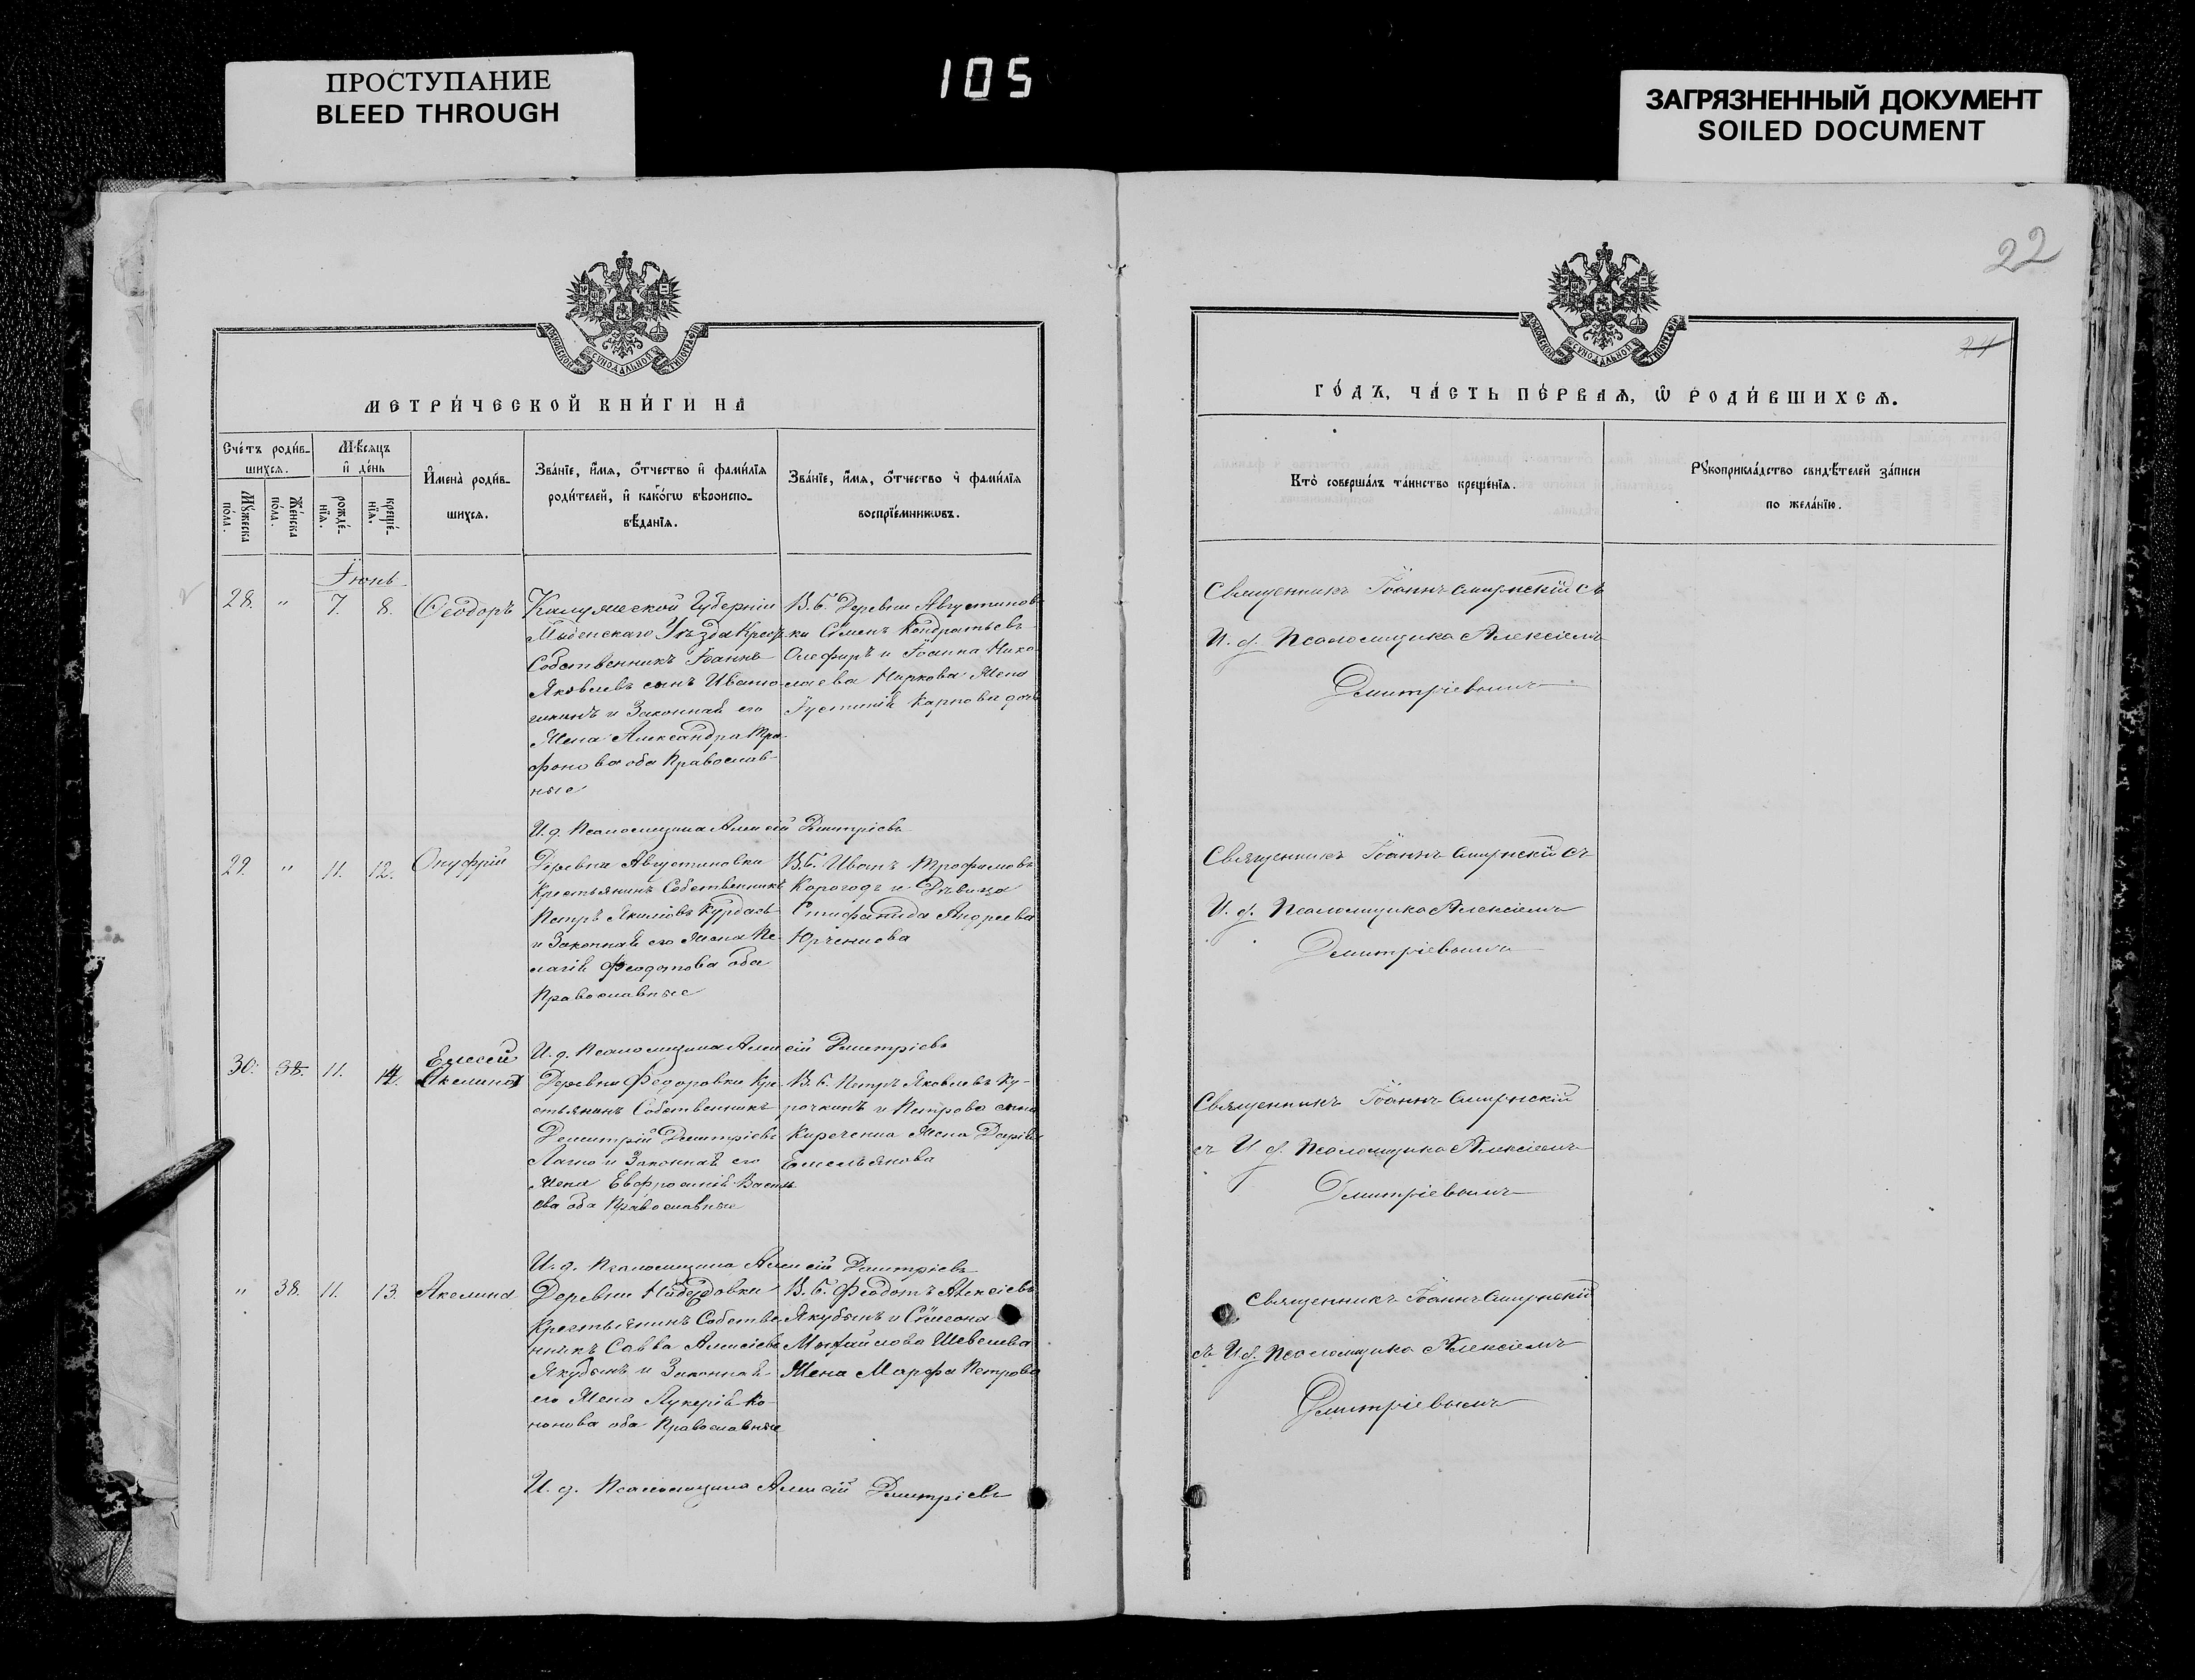 ПРОСТУПАНИЕ
BLEED THROUGH
105
ЗАГРЯЗНЕННЫЙ ДОКУМЕНТ
SOILED DOCUMENT
22
24
МОСКОВСКОЙ СѴНОДАЛЬНОЙ ТИПОГРАФІИ
МЕТРИ́ЧЕСКОЙ КНИ́ГИ НА
Сче́тъ роди́в-
шихся.
Мѣ́сяцъ
и де́нь
Мꙋ́жеска по́ла.
Же́нска по́ла.
рожде́-нїя.
креще́-нїя.
Имена̀ роди́в-
шихся.
Зва́нїе, и́мя, о́тчество и фами́лїя
роди́телей, и како́гѡ вѣроиспо-
вѣ́данїя.
Зва́нїе, и́мя, о́тчество и фами́лїя
воспрїе́мникѡвъ.
Іюнь
28. " 7. 8. Ѳеодоръ
Калужской Губерніи
Собственникъ Іоаннъ
Яковлевъ сынъ
и Законная его
Жена Александра
оба Православ-
ные
В.б. Деревни Августинов-
ки Симеонъ Кондратьевъ
и Іоанна Нико-
лаева Жена
Карпова дочь
И. д. Псаломщика Алексій Дмитріевъ
29. " 11. 12. Онуфрій
Деревни Августиновки
Крестьянинъ Собственникъ
Петръ Якимовъ
и Законная его Жена Пе-
лагія Феодотова оба
Православные
В.б. Иванъ Трофимовъ
Корогодъ и Дѣвица
Стефанида Андреева
И. д. Псаломщика Алексій Дмитріевъ
30. 38. 11. 14. Елисей
Акелина
Деревни Федоровки Кре-
стьянинъ Собственникъ
Димитрій Дмитріевъ
и Законная его
Жена Евфросинія Василь
ева оба Православные
В.б. Петръ Яковлевъ Ку-
рочкинъ и Петрова
Жена Дарія
Емельянова
И. д. Псаломщика Алексій Дмитріевъ
" 38. 11. 13. Акелина
Деревни
Крестьянинъ Собстве
нникъ Савва Алексіевъ
Якубынъ и Законная
его Жена Лукерія Ко-
нонова оба Православные
В.б. Феодотъ Алексіевъ
Якубынъ и Симеона
Михайлова Шевелева
Жена Марфа Петрова
И. д. Псаломщика Алексій Дмитріевъ
МОСКОВСКОЙ СѴНОДАЛЬНОЙ ТИПОГРАФІИ
ГО́ДЪ, ЧА́СТЬ ПЕ́РВАѦ, Ѡ РОДИ́ВШИХСѦ.
Кто̀ соверша́лъ та́инство креще́нїя.
Рꙋкоприкла́дство свидѣ́телей за́писи
по жела́нїю.
Священникъ Іоаннъ Смирнскій съ
И. д. Псаломщика Алексіемъ
Дмитріевымъ
Священникъ Іоаннъ Смирнскій съ
И. д. Псаломщика Алексіемъ
Дмитріевымъ
Священникъ Іоаннъ Смирнскій
съ И. д. Псаломщика Алексіемъ
Дмитріевымъ
Священникъ Іоаннъ Смирнскій
съ И. д. Псаломщика Алексіемъ
Дмитріевымъ